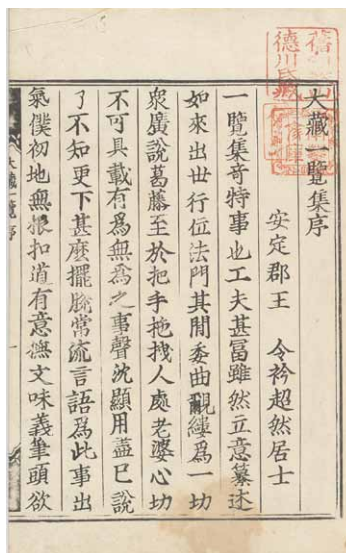 大藏一覽集序
安定郡王　令衿超然居士
一覽集竒特事也工夫甚冨雖然立意纂述
如來出世行位法門其閒委曲覼縷爲一切
衆廣說葛藤至於把手拖拽人處老婆心切
不可具載有爲無爲之事聲沈顯用盡已說
了不知更下甚麽擺脫常流言語爲此事出
氣僕初地無根扣道有意撫文味義筆頭欲
大藏一覽序
德川